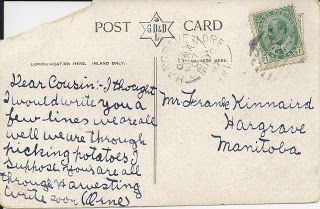 POST CARD
G.D&D
COMMUNICATION HERE, INLAND ONLY.
ADDRESS HERE.
Dear Cousin:- I thought
I would write you a
few lines we are all
well we are through
picking potatoes I
suppose yous are all
through Harvesting
write soon
Mr Frank Kinnaird
Hargrave
Manitoba